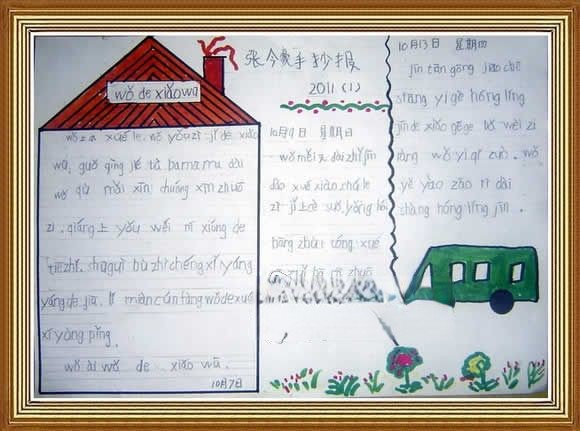 张今豪手抄报
2011 (1)
wǒ de xiǎo wū
wǒ 上 xué le. wǒ yǒu zì jǐ de xiǎo
wū. guó qìng jié bà ba mā ma dài
wǒ qù mǎi xīn chuáng xīn zhuō
zi. qiáng 上 yǒu wéi nī xióng de
tiē zhǐ. shū guì bù zhì chéng xǐ yáng
yáng de jiā. lǐ miàn cún fàng wǒ de xué
xí yòng pǐng.
wǒ ài wǒ de xiǎo wū.
10月7日
10月9日 星期日
wǒ měi 天 dài zhī jīn
dào xué xiào. chá le
zì jǐ de
bāng zhù tóng xué
10月13日 星期四
jīn tiān gōng jiāo chē
shàng yī gè hóng lǐng
jīn de xiǎo gē ge
ràng wǒ yī qǐ zuò. wǒ
yě yào zǎo rì dài
shàng hóng lǐng jīn.